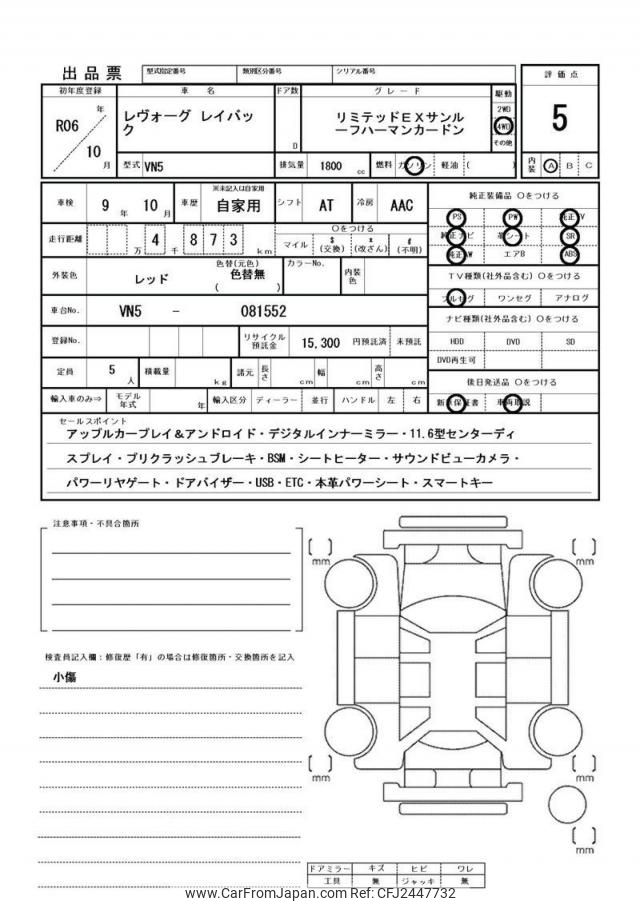 出品票 型式指定番号 類別区分番号 シリアル番号
評価点
初年度登録 車名 ドア数 グレード 駆動
R06 年 10 月
レヴォーグ レイバッ
ク
D
リミテッドEXサンル
ーフハーマンカードン
2WD
4WD
その他
5
型式 VN5 排気量 1800 cc 燃料 ガソリン ・ 軽油 ・( )
内装 A B C
車検 9 年 10 月 車歴 ※未記入は自家用 自家用 シフト AT 冷房 AAC
純正装備品 Oをつける
PS PW 純正TV
純正ナビ 革シート SR
純正AW エアB ABS
走行距離 4 万 873 千 km
Oをつける
マイル $(交換) x(改ざん) #(不明)
TV種類(社外品含む) Oをつける
フルセグ ワンセグ アナログ
外装色 レッド 色替(元色) 色替無 ( ) カラーNo. 内装色
車台No. VN5 - 081552
ナビ種類(社外品含む) Oをつける
HDD DVD SD
DVD再生可
登録No. リサイクル預託金 15,300 円預託済 未預託
定員 5 人 積載量 kg 諸元 長さ cm 幅 cm 高さ cm
後日発送品 Oをつける
新車保証書 車両取説
輸入車のみ⇒ モデル年式 年 輸入区分 ディーラー ・ 並行 ハンドル 左 ・ 右
セールスポイント
アップルカープレイ&アンドロイド・デジタルインナーミラー・11.6型センターディ
スプレイ・プリクラッシュブレーキ・BSM・シートヒーター・サウンドビューカメラ・
パワーリヤゲート・ドアバイザー・USB・ETC・本革パワーシート・スマートキー
注意事項・不具合箇所
検査員記入欄:修復歴「有」の場合は修復箇所・交換箇所を記入
小傷
[ ] mm
[ ] mm
[ ] mm
[ ] mm
[ ] mm
ドアミラー キズ ヒビ ワレ
工具 無 ジャッキ 無
www.CarFromJapan.com Ref: CFJ2447732